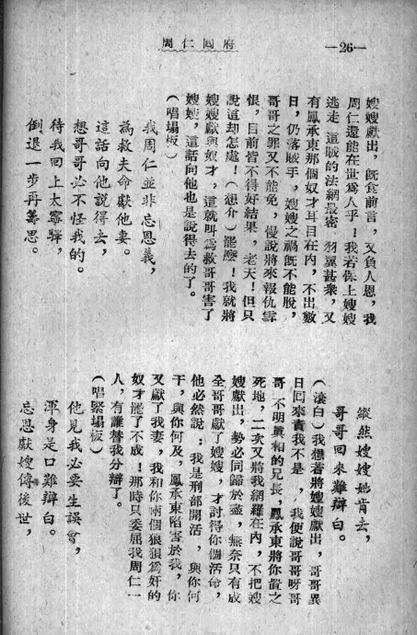 周仁回府
—26—
嫂嫂獻出，既食前言，又負人恩，我
周仁還能在世爲人乎！我若保上嫂嫂
逃走，這賊的法網最密，羽翼甚衆，又
有鳳承東那個奴才耳目在內，不出數
日，仍落賊手，嫂嫂之禍旣不能脫，
哥哥之罪又不能免，慢說將來報仇雪
恨，目前皆不得好結果，老天！但只
說這却怎處！（想介）罷麽！我就將
嫂嫂獻與奴才，這就叫爲救哥哥害了
嫂嫂，這話向他也是說得去的了。
（唱塌板）
我周仁並非忘恩義，
爲救夫命獻他妻。
這話向他說得去，
想哥哥必不怪我的。
待我回上太尉驛，
倒退一步再籌思。
縱然嫂嫂她肯去，
哥哥回來難辯白。
（滾白）我想著將嫂嫂獻出，哥哥異
日回來責我不是，我便說哥哥呀哥
哥，不明眞相的兄長，鳳承東將你置之
死地，二次又將我網羅在內，不把嫂
嫂獻出，勢必同歸於盡，無奈只有成
全哥哥獻了嫂嫂，才討得你個活命，
他必然說：我是刑部開活，與你何
干，與你何及，鳳承東陷害於我，你
又獻了我妻，我和你兩個狼狽爲奸的
奴才擺了不成！那時只委屈我周仁一
人，有誰替我分辯了。
（唱緊塌板）
他見我必要生誤會，
渾身是口難辯白。
忘恩獻嫂傳後世，